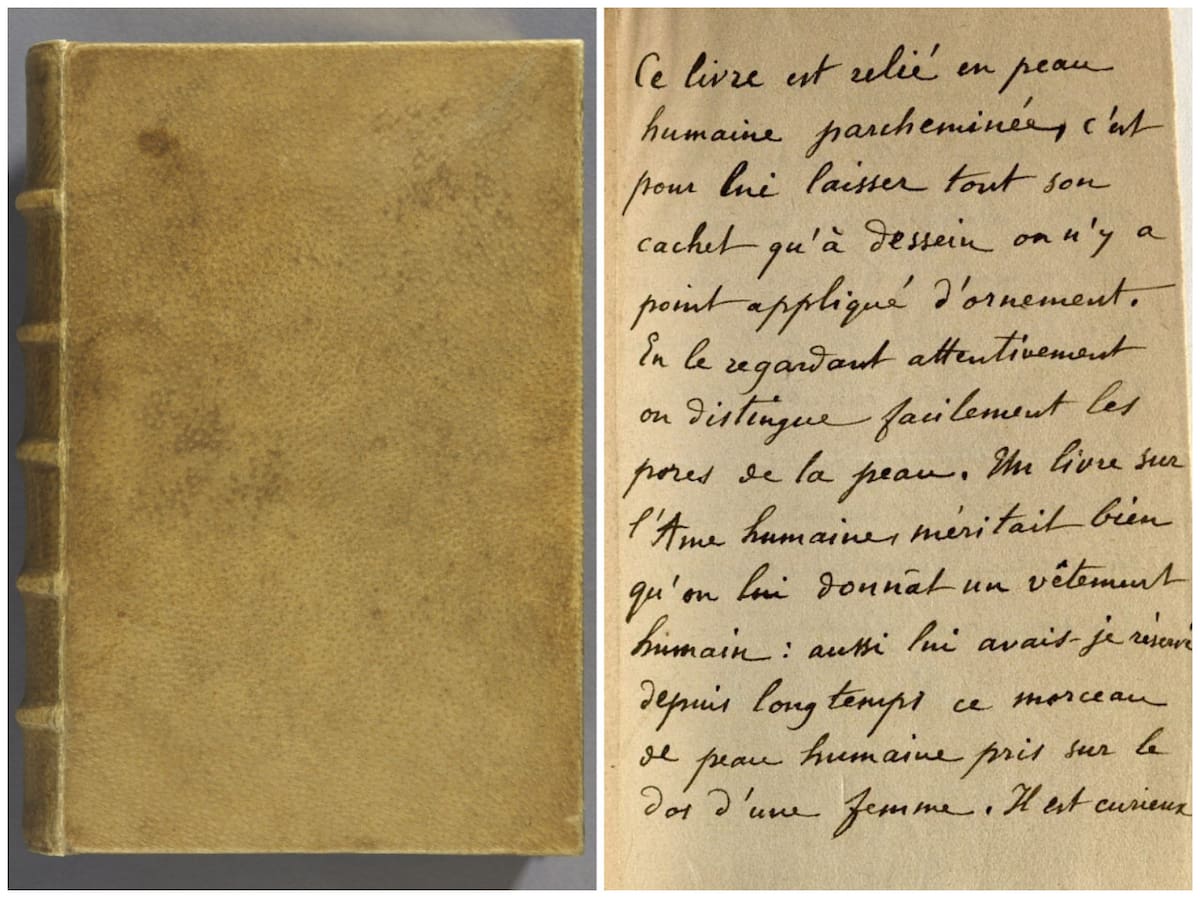 Ce livre est relié en peau
humaine parcheminée, c'est
pour lui laisser tout son
cachet qu'à dessein on n'y a
point appliqué d'ornement.
En le regardant attentivement
on distingue facilement les
pores de la peau. Un livre sur
l'Ame humaine, méritait bien
qu'on lui donnât un vêtement
humain : aussi lui avais-je réservé
depuis longtemps ce morceau
de peau humaine pris sur le
dos d'une femme. Il est curieux